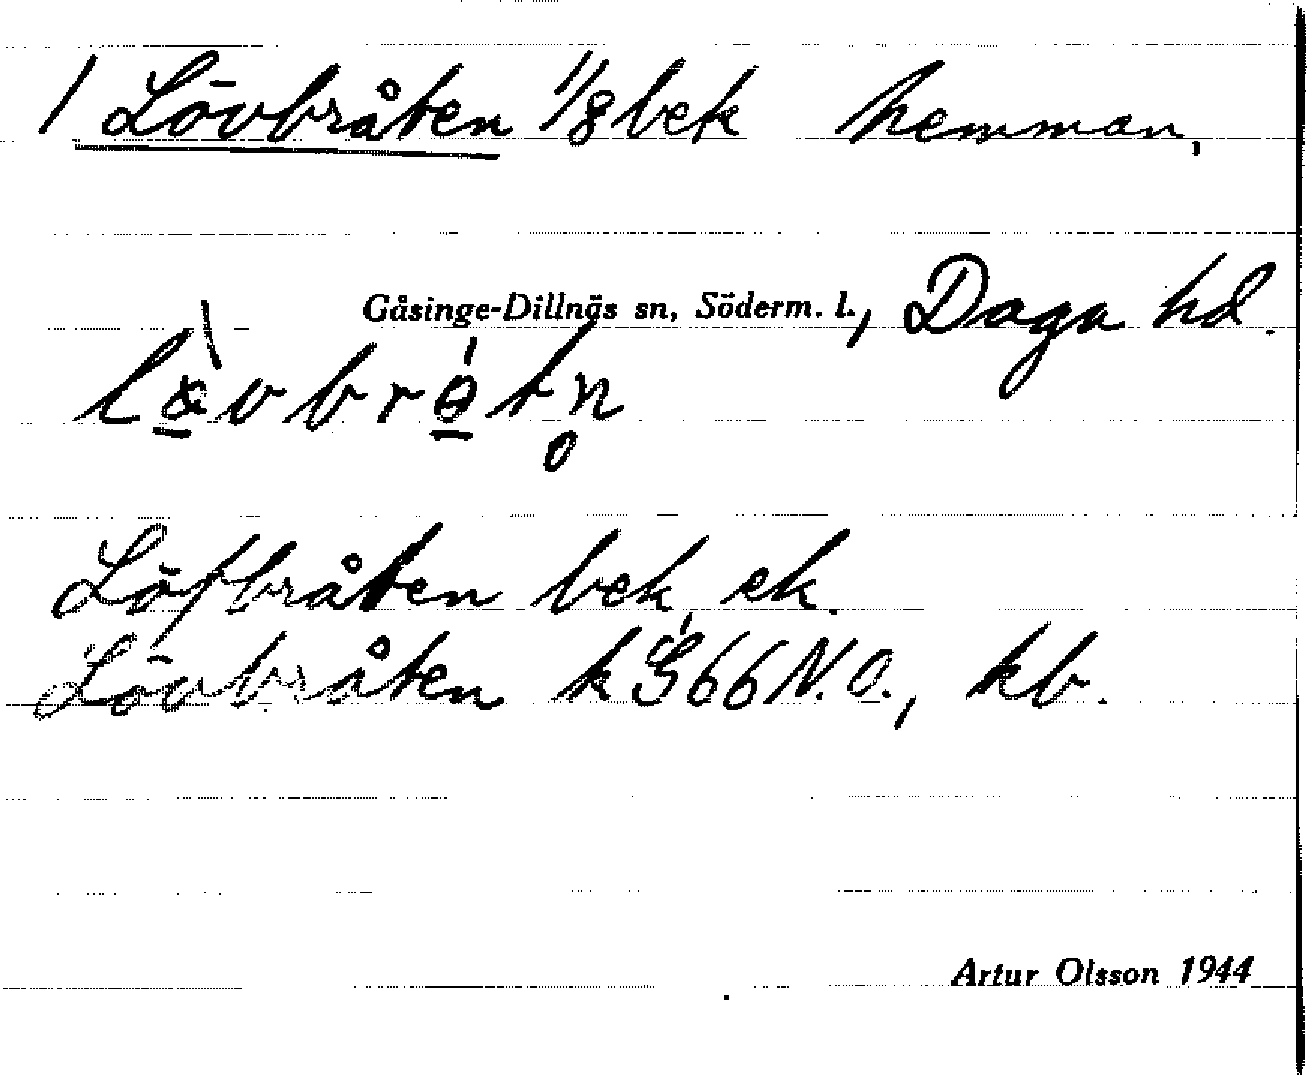 / Lövbråten 1/8 bek hemman,
Gåsinge-Dillnäs sn, Söderm. l., Daga hd.
Löfbråten bek, ek.
Lövbråten k G66 N.O., kb.
Artur Olsson 1944